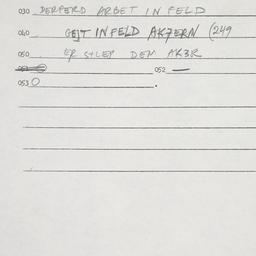 030 DERFERD ARBET IN FELD
040 GEJT IN FELD AKZERN (249
050 ER STLEP DEM AKZR
052 —
053 O .